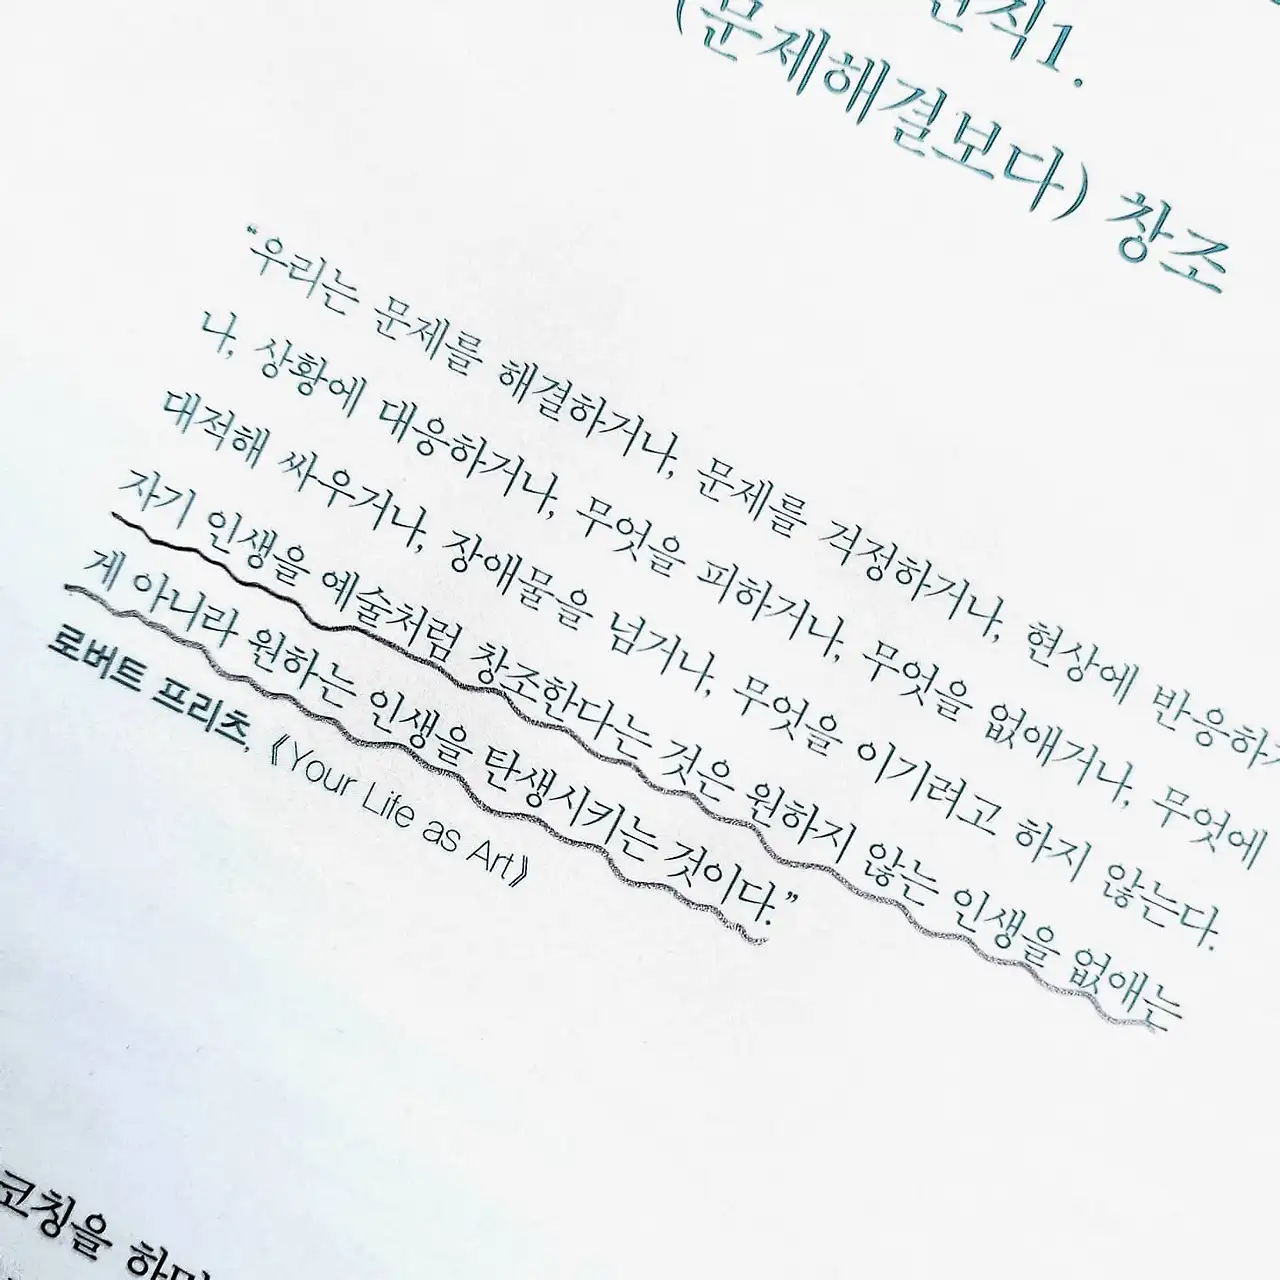 원칙1.
(문제해결보다) 창조
“우리는 문제를 해결하거나, 문제를 걱정하거나, 현상에 반응하거
나, 상황에 대응하거나, 무엇을 피하거나, 무엇을 없애거나, 무엇에
대적해 싸우거나, 장애물을 넘거나, 무엇을 이기려고 하지 않는다.
자기 인생을 예술처럼 창조한다는 것은 원하지 않는 인생을 없애는
게 아니라 원하는 인생을 탄생시키는 것이다.”
로버트 프리츠, 《Your Life as Art》
코칭을